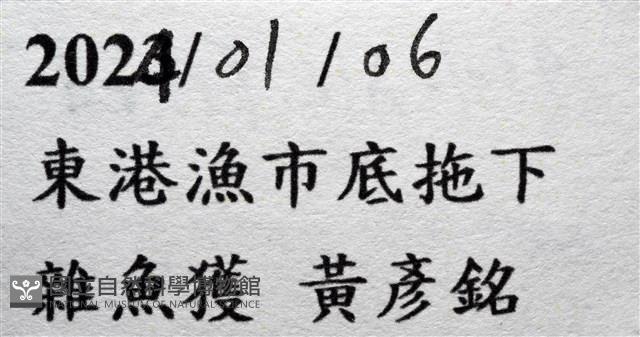 2024/01/06
東港漁市底拖下
雜魚獲 黃彥銘
國立自然科學博物館
NATIONAL MUSEUM OF NATURAL SCIENCE